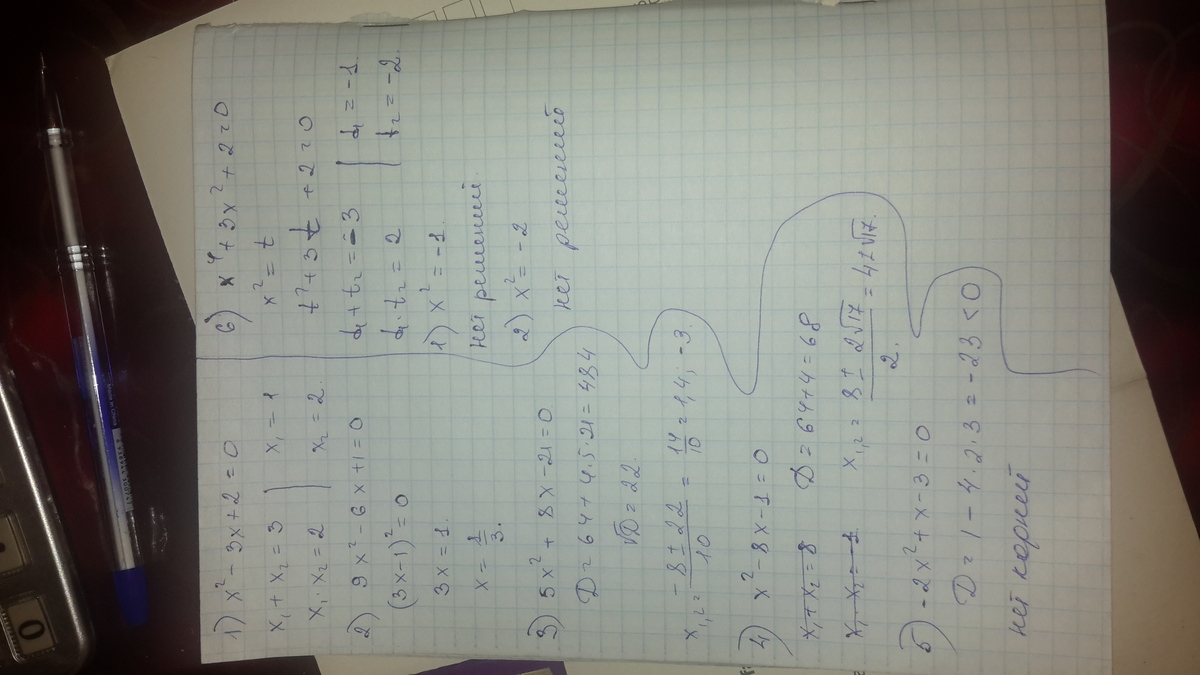 1) x² - 3x + 2 = 0
x₁ + x₂ = 3 | x₁ = 1
x₁ · x₂ = 2 | x₂ = 2.
2) 9x² - 6x + 1 = 0
(3x - 1)² = 0
3x = 1.
x = 1/3.
3) 5x² + 8x - 21 = 0.
D = 64 + 4·5·21 = 484
√D = 22.
x₁,₂ = (-8 ± 22)/10 = 14/10 = 1,4; -3.
4) x² - 8x - 1 = 0
x₁ + x₂ = 8 D = 64 + 4 = 68
x₁ · x₂ = -1 x₁,₂ = (8 ± 2√17)/2. = 4 ± √17.
5) -2x² + x - 3 = 0
D = 1 - 4·2·3 = -23 < 0
нет корней
6) x⁴ + 3x² + 2 = 0
x² = t
t² + 3t + 2 = 0
t₁ + t₂ = -3 | t₁ = -1.
t₁ · t₂ = 2 | t₂ = -2.
1) x² = -1.
нет решений.
2) x² = -2
нет решений
0